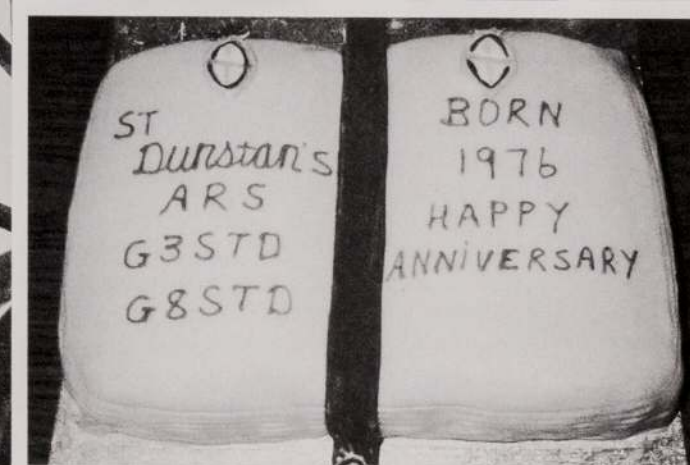 ST
Dunstan's
ARS
G3STD
G8STD
BORN
1976
HAPPY
ANNiVERSARY